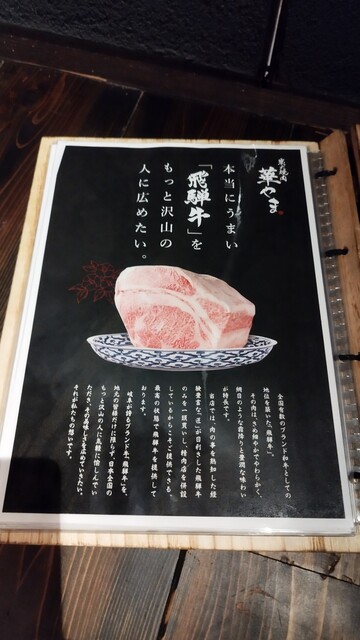 炭火焼肉
華やま
本当にうまい
「飛騨牛」を
もっと沢山の
人に広めたい。
全国有数のブランド和牛としての
地位を築いた「飛騨牛」。
その肉は、きめ細かでやわらかく、
網目のような霜降りと豊潤な味わい
が特長です。
当店では、肉の事を熟知した経
験豊富な「匠」が目利きした飛騨牛
のみを一頭買いし、精肉店を併設
しているからこそご提供できる、
最高の状態で飛騨牛を提供して
おります。
岐阜が誇るブランド牛、「飛騨牛」を、
地元の皆様だけに限らず、日本全国の
もっと沢山の人に気軽に愉しんでい
ただき、その美味しさを広めていきたい。
それが私たちの想いです。